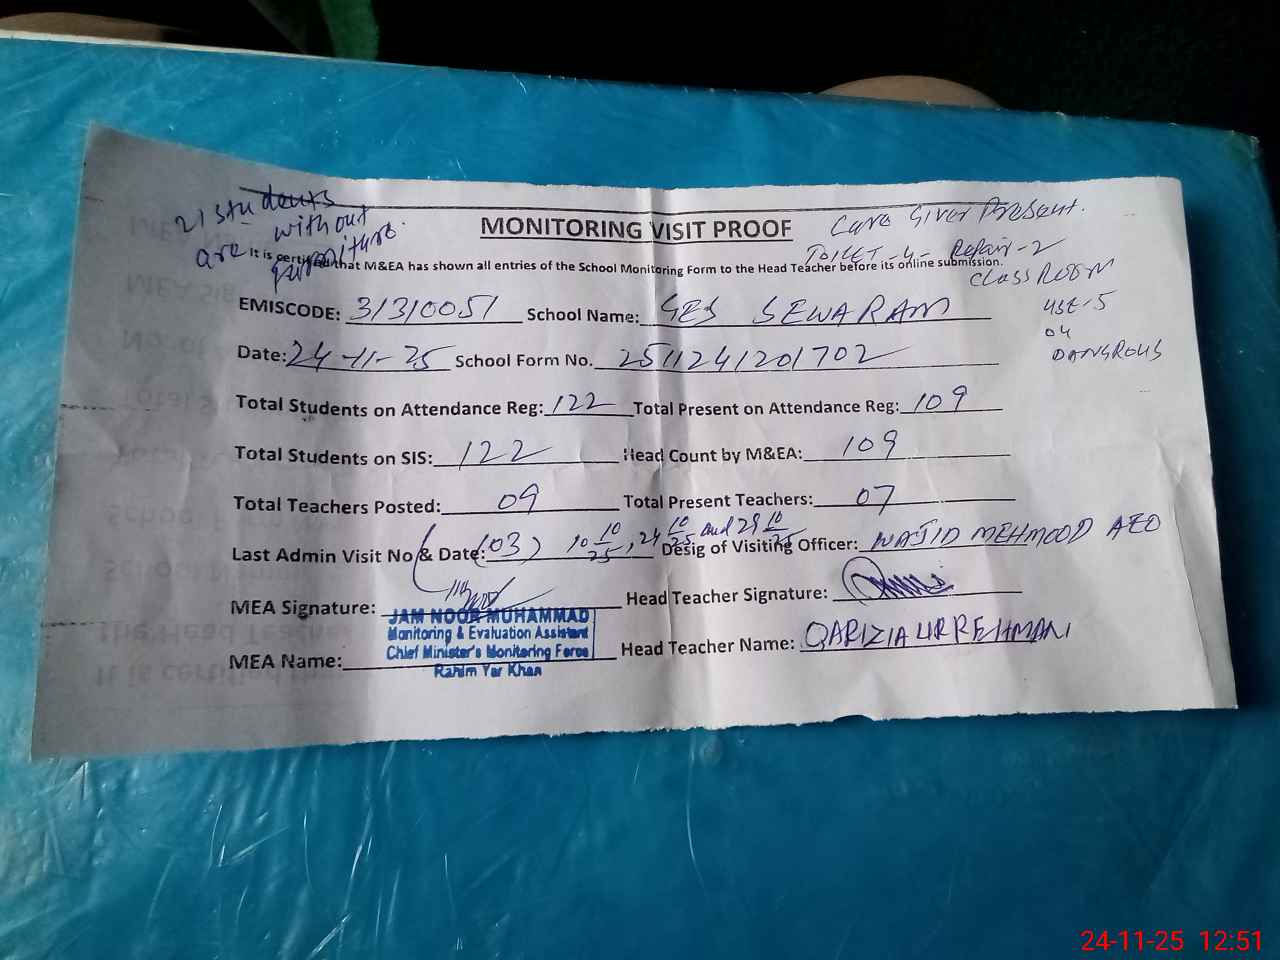 21 students
are without
furniture.
MONITORING VISIT PROOF
Care Giver Present.
Toilet -4- Repair-2
It is certified that M&EA has shown all entries of the School Monitoring Form to the Head Teacher before its online submission.
CLASSROOM
USE-5
04
DANGROUS
EMISCODE: 31310051 School Name: GES SEWARAM
Date: 24-11-25 School Form No. 2511241201702
Total Students on Attendance Reg: 122 Total Present on Attendance Reg: 109
Total Students on SIS: 122 Head Count by M&EA: 109
Total Teachers Posted: 09 Total Present Teachers: 07
Last Admin Visit No & Date: (03) 10 10/25, 24 10/25 and 29 10/25 Desig of Visiting Officer: WAJID MEHMOOD AEO
MEA Signature: Head Teacher Signature:
JAM NOOR MUHAMMAD
Monitoring & Evaluation Assistant
Chief Minister's Monitoring Force
Rahim Yar Khan
MEA Name: Head Teacher Name: QARI ZIA UR REHMAN
24-11-25 12:51